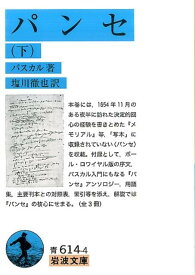 パンセ
(下)
パスカル著
塩川徹也訳
本巻には、1654年11月の
ある夜半に訪れた決定的回
心の経験を書きとめた『メ
モリアル』等、「写本」に
収録されていない〈パンセ〉
を収載。付録として、ポー
ル・ロワイヤル版の序文、
パスカル入門にもなる『パ
ンセ』アンソロジー、用語
集、主要刊本との対照表、索引等を添え、解説では
『パンセ』の核心にせまる。(全3冊)
青614-4
岩波文庫